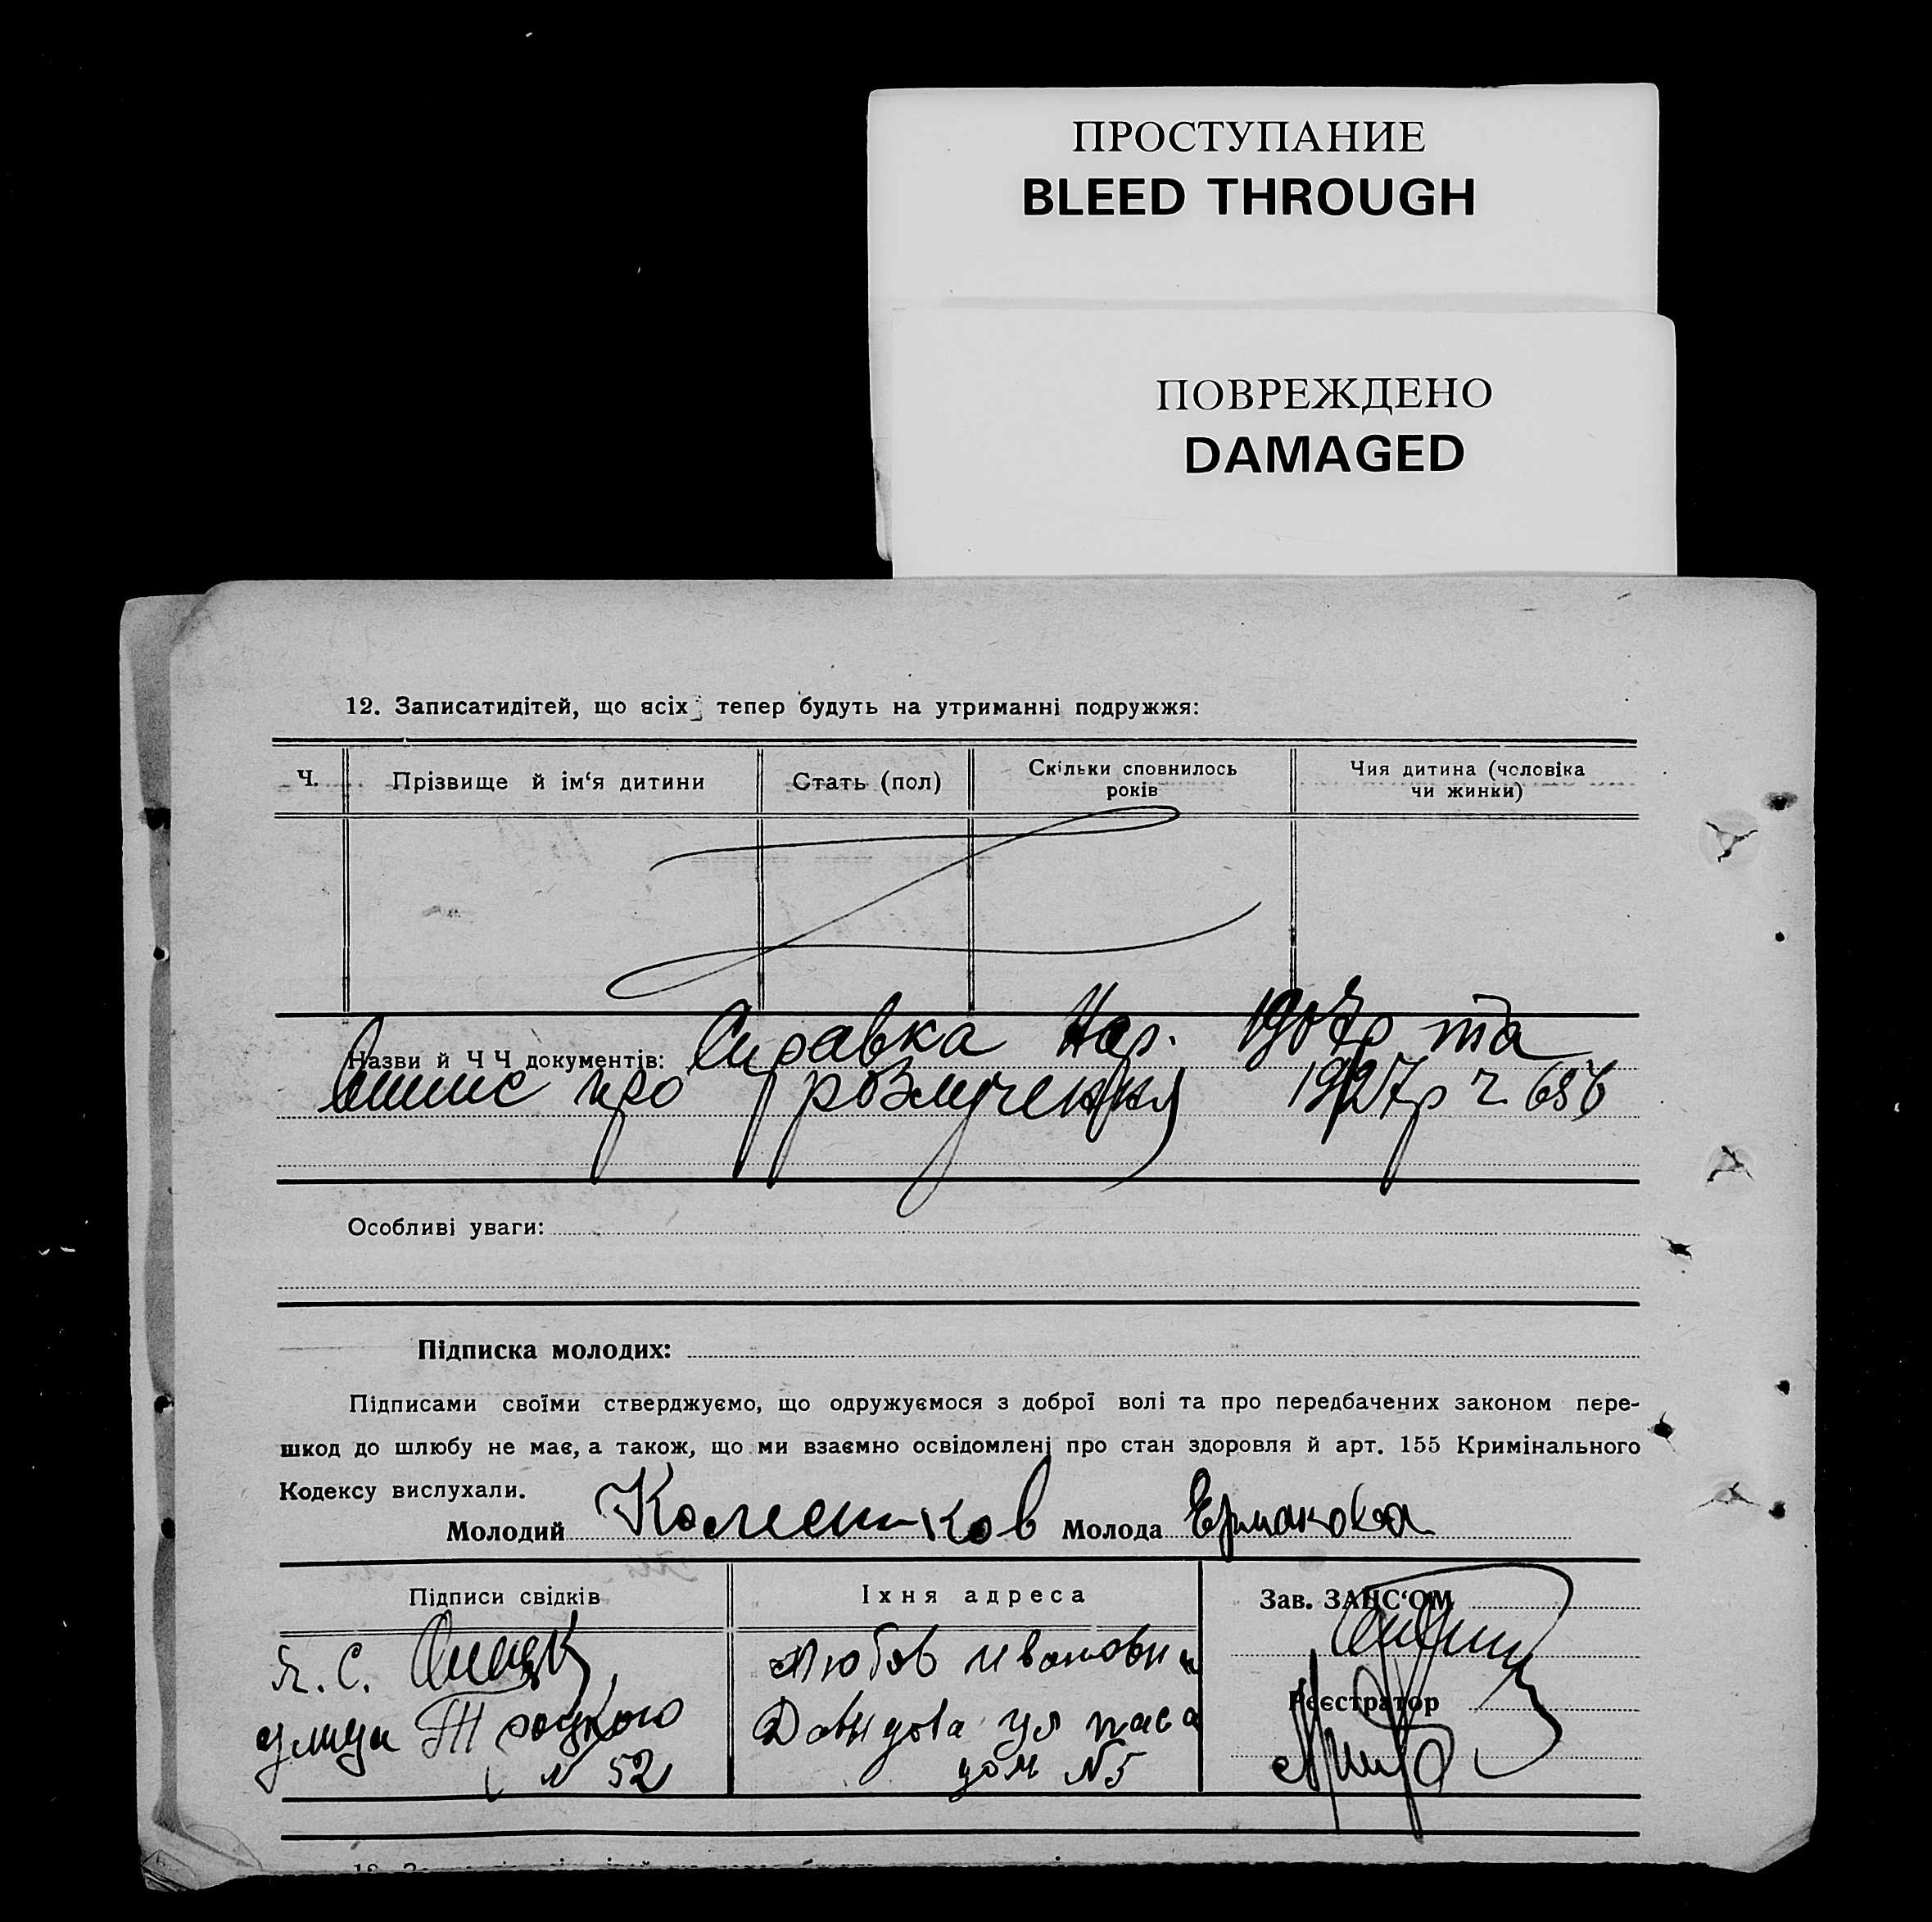 ПРОСТУПАНИЕ
BLEED THROUGH
ПОВРЕЖДЕНО
DAMAGED
12. Записатидітей, що всіх тепер будуть на утриманні подружжя:
Ч.
Прізвище й ім'я дитини
Стать (пол)
Скільки сповнилось
років
Чия дитина (чоловіка
чи жинки)
Назви й Ч Ч документів: Справка Нар. 1907р та
випис про розлучення 1927р ч 656
Особливі уваги:
Підписка молодих:
Підписами своїми стверджуємо, що одружуємося з доброї волі та про передбачених законом пере-
шкод до шлюбу не має, а також, що ми взаємно освідомлені про стан здоровля й арт. 155 Кримінального
Кодексу вислухали.
Молодий Колесников Молода Ермакова
Підписи свідків
С.
улица Троцкого
N 52
Їхня адреса
Любов Ивановна
Давидова ул
дом N5
Зав. ЗАГС'ОМ
Реєстратор